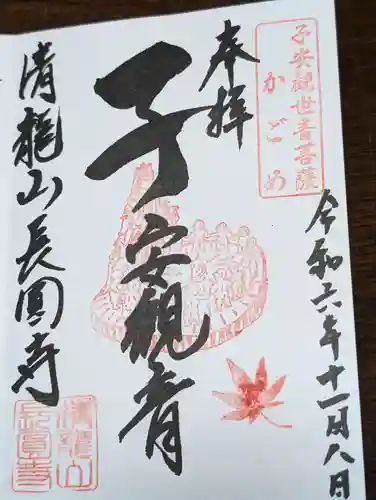 子安観世音菩薩
かごめ
奉拝
令和六年十一月八日
子安観音
清龍山長圓寺
清龍山
長圓寺